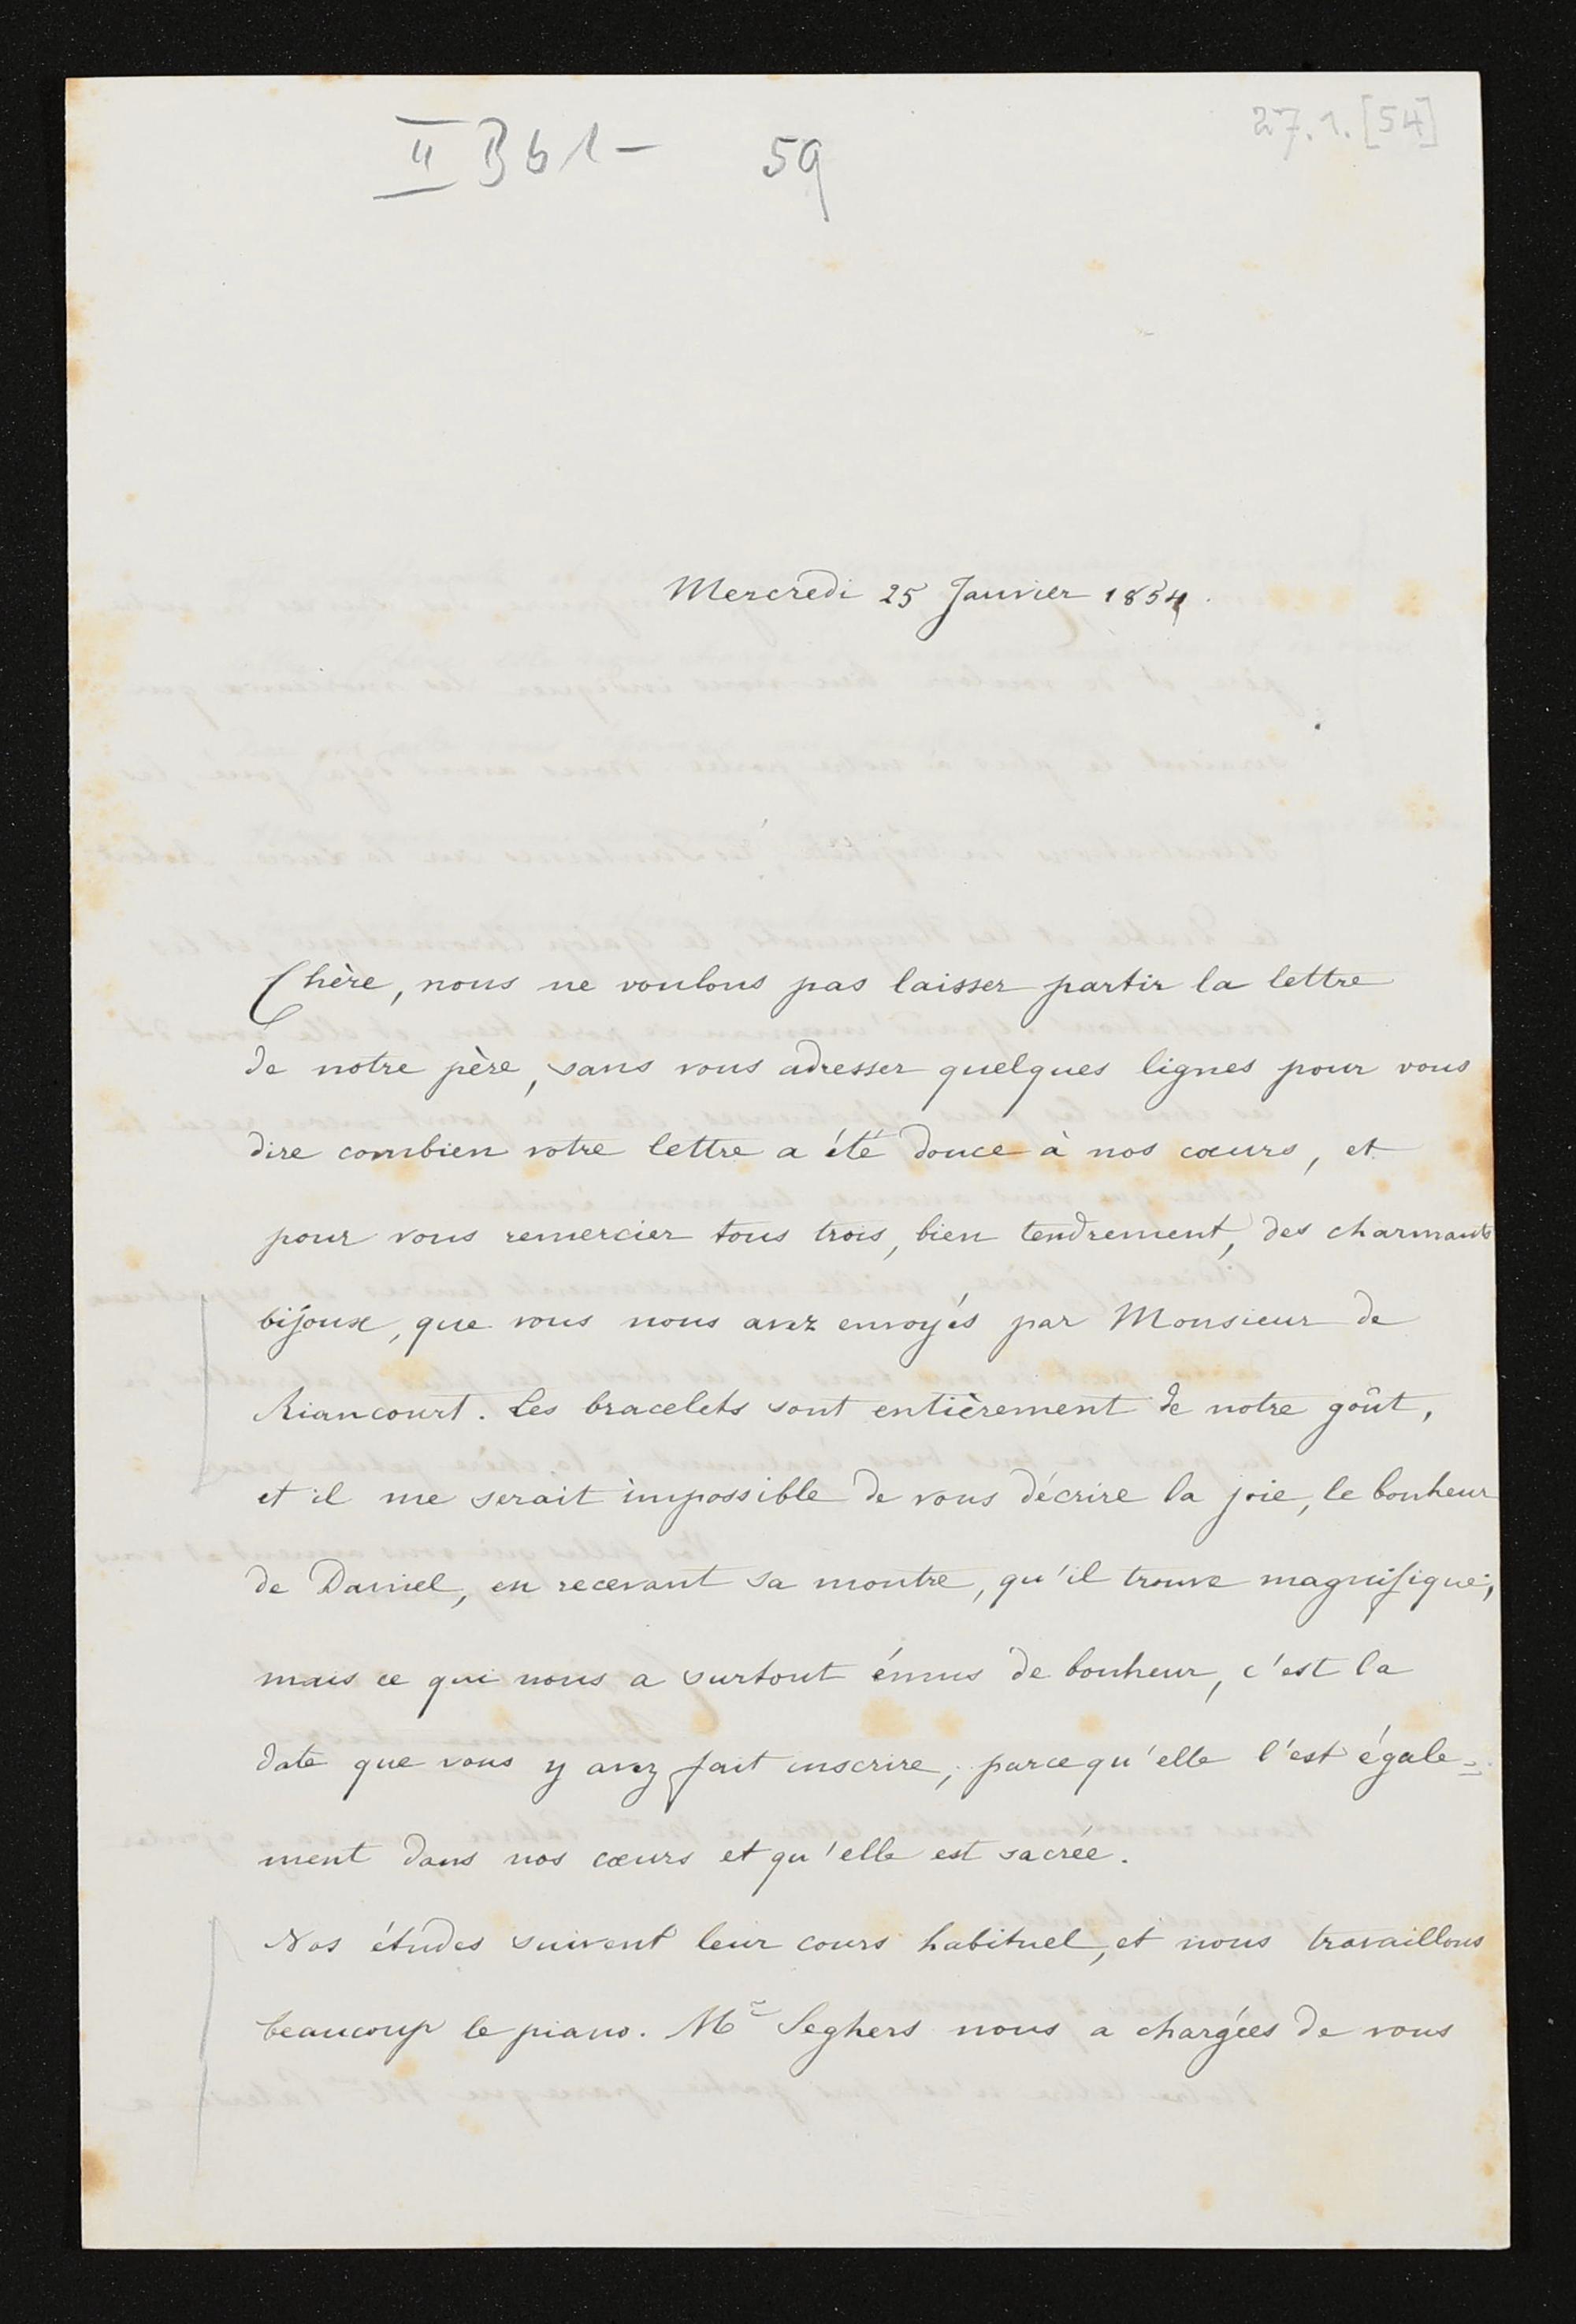 II Bb1 - 59
27.1.[54]
Mercredi 25 Janvier 1854.
Chère, nous ne voulons pas laisser partir la lettre
de notre père, sans vous adresser quelques lignes pour vous
dire combien votre lettre a été douce à nos cœurs, et
pour vous remercier tous trois, bien tendrement, des charmants
bijoux, que vous nous avez envoyés par Monsieur de
Riancourt. Les bracelets sont entièrement de notre goût,
et il me serait impossible de vous décrire la joie, le bonheur
de Daniel, en recevant sa montre, qu'il trouve magnifique;
mais ce qui nous a surtout émus de bonheur, c'est la
date que vous y avez fait inscrire, parcequ'elle l'est égale=
ment dans nos cœurs et qu'elle est sacrée.
Nos études suivent leur cours habituel, et nous travaillons
beaucoup le piano. Mr Seghers nous a chargées de vous